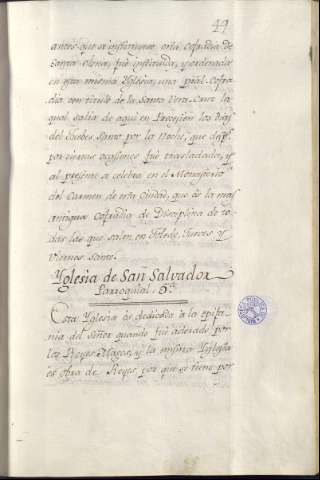 49
antes que se instituiese esta Cofradia de
Santa Elena, fue instituida, y ordenada
en esta misma Yglesia, una pial. Cofra
dia con titulo de la Santa Vera Cruz la
qual salia de aqui en Procesion los dias
del Juebes Santo por la Noche, que desp.s
por ciertas ocasiones fue trasladada, y
al presente se celebra en el Monasterio
del Carmen de esta Ciudad, que es la mas
antigua Cofradia de Disceplina de to
das las que salen en Toledo Jueves y
Viernes Santo.
Yglesia de San Salvador
Parroquial 6.a
Esta Yglesia es dedicada à la epifa
nia del Señor quando fue adorado por
los Reyes Magos, y la misma Yglesia
es obra de Reyes por que se tiene por